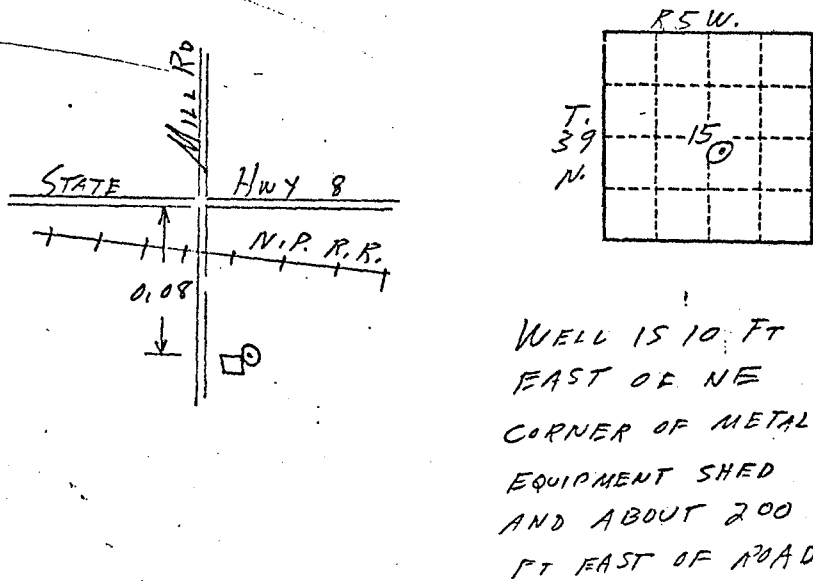 MILL RD
STATE HWY 8
N.P. R.R.
0.08
R5W.
T.
39
N.
15
WELL IS 10 FT
EAST OF NE
CORNER OF METAL
EQUIPMENT SHED
AND ABOUT 200
FT EAST OF ROAD